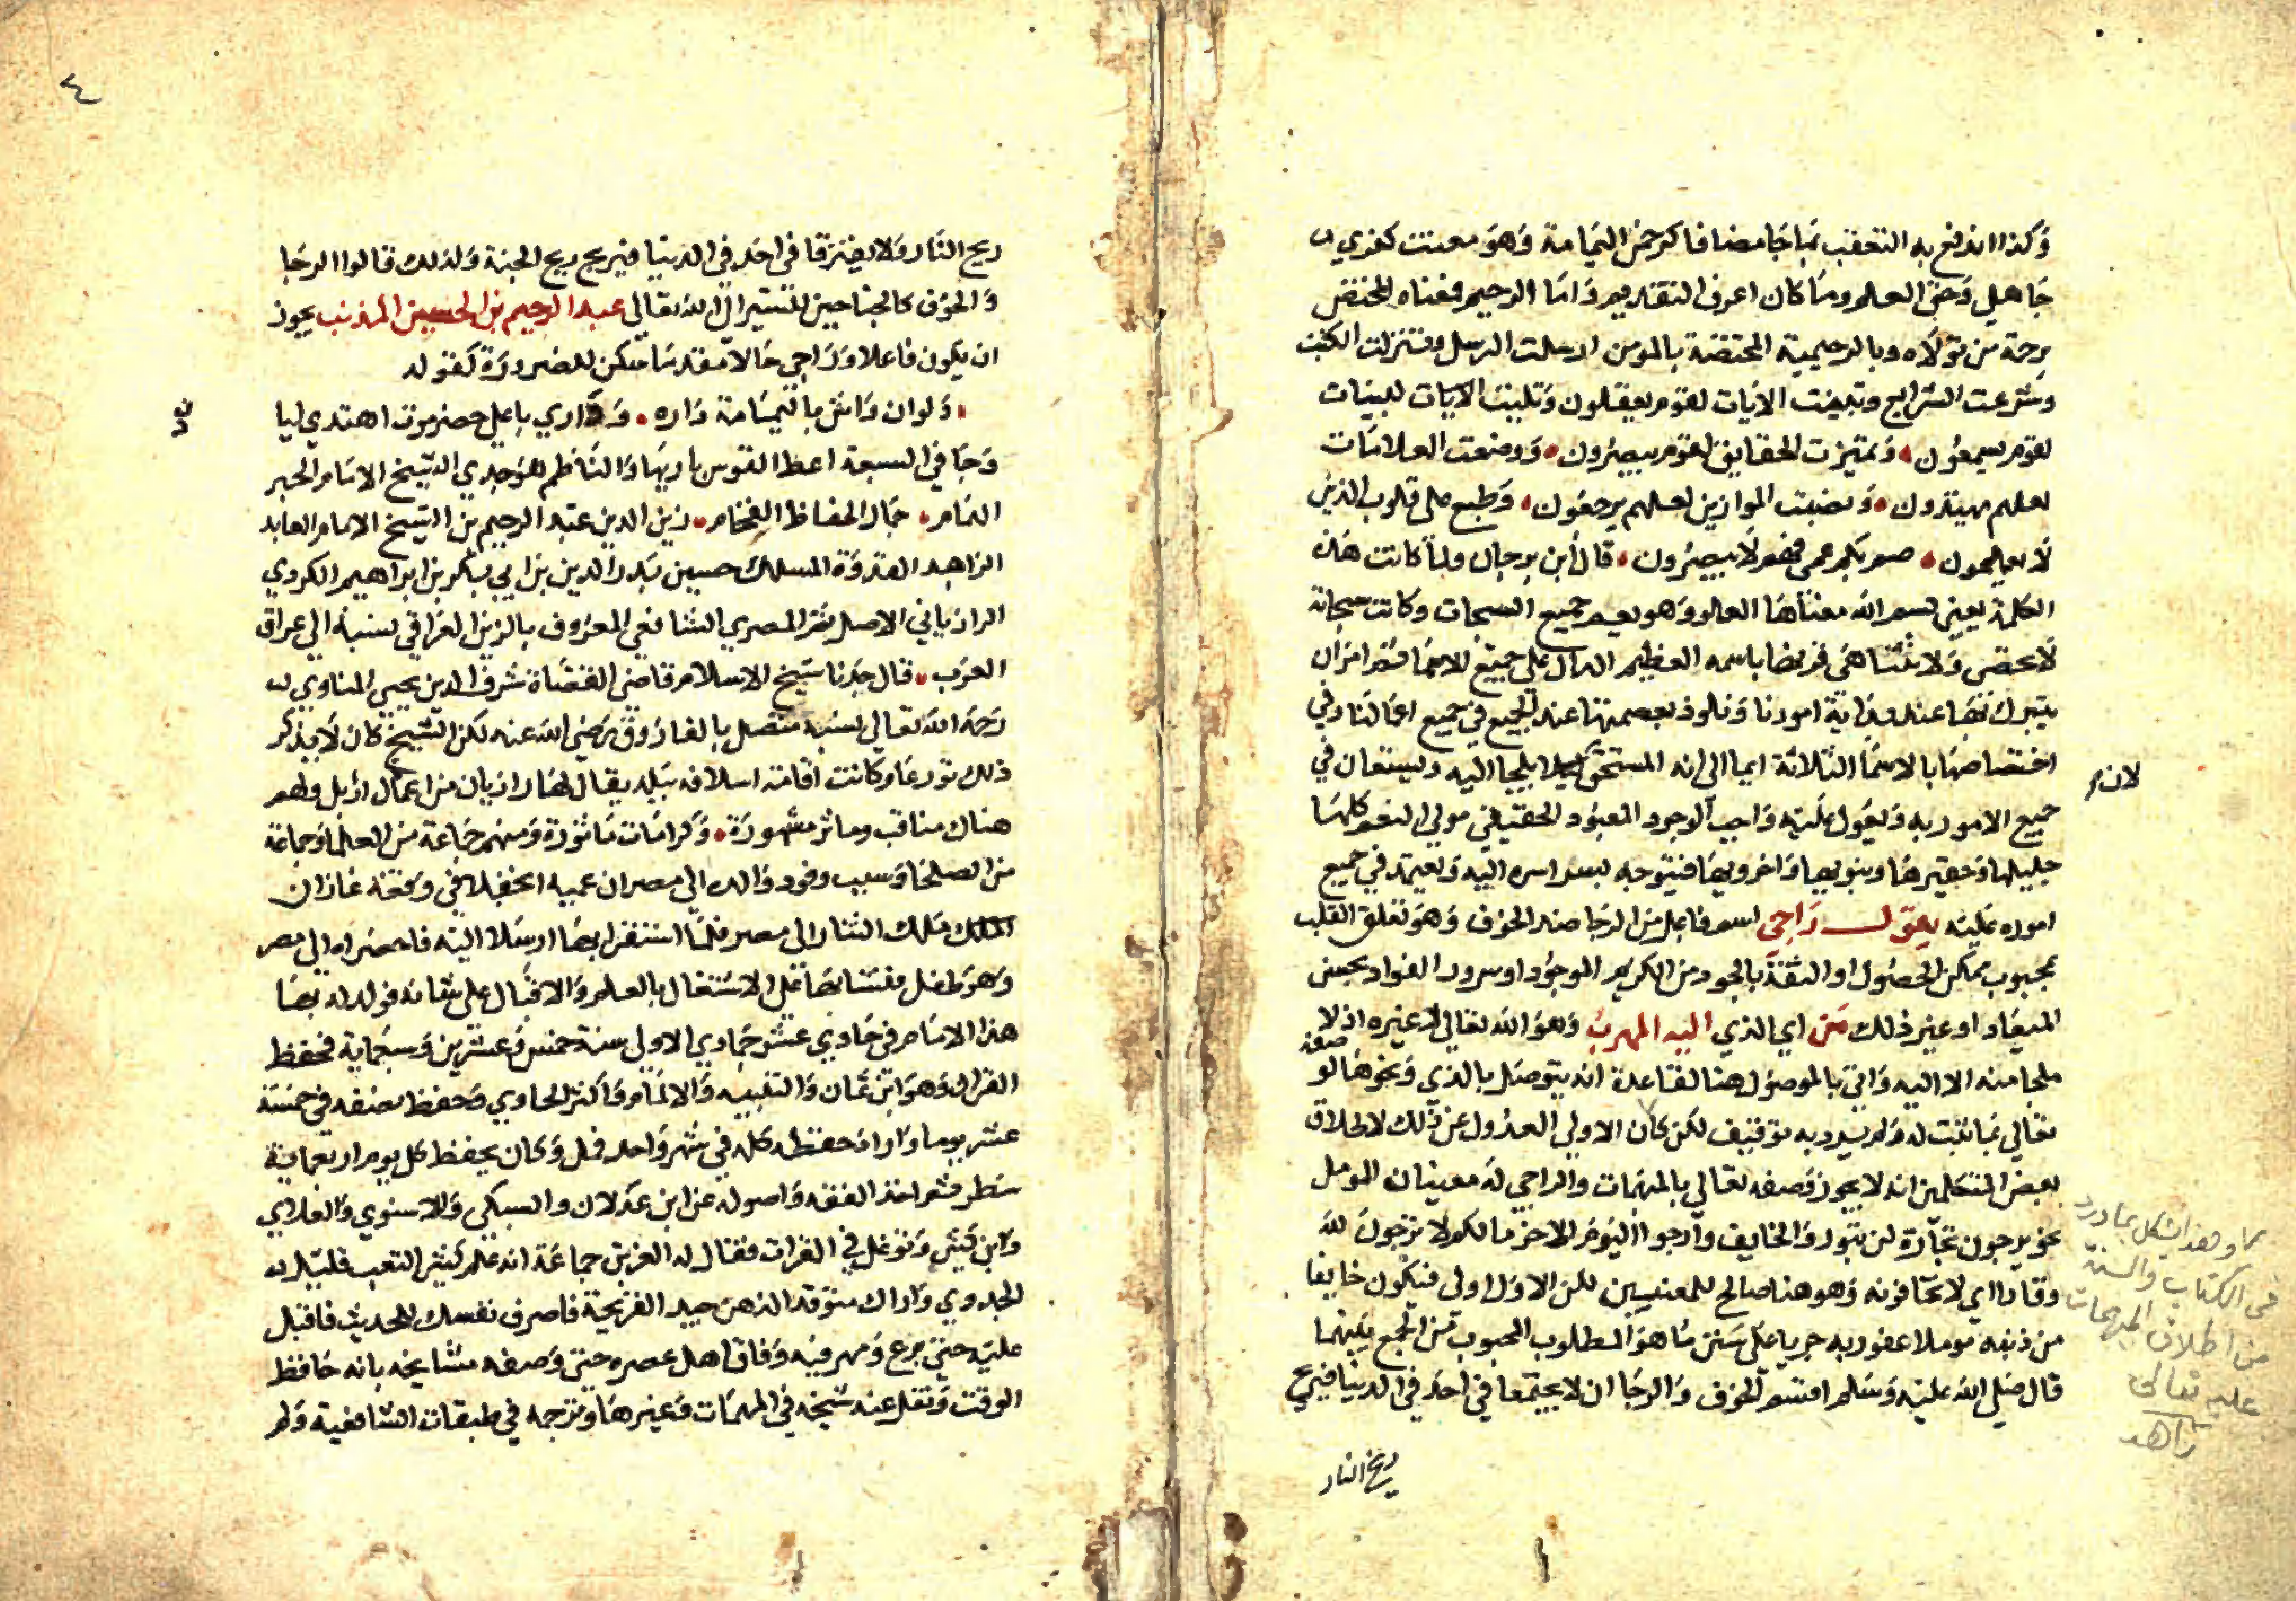 وكذا اندفع به التعقب بما جا مضافا كرحمن اليمامة وهو معنت كفري
جاهلي وحق العلم وما كان اعرف التقديم واما الرحيم فمعناه المختص
برحمة من تولاه وبالرحيمية المختصة بالمومن ارسلت الرسل وتنزلت الكتب
وشرعت الشرايع وتبينت الايات لقوم يعقلون وتليت الايات البينات
لقوم يسمعون وتميزت الحقايق لقوم يبصرون ووضعت العلامات
لعلهم يهتدون ونصبت الموازين لعلهم يرجعون وطبع على قلوب الذين
لا يعلمون صم بكم عمي فهم لا يبصرون قال ابن برجان ولما كانت هذه
الكلمة يعني بسم الله معناها العلو وهو يعم جميع السبحات وكانت سبحاته
لا تحصى ولا تتناهى فرضا باسمه العظيم الدال على جميع الاسما ثم امر ان
يتبرك بها عند بداية امورنا ونلوذ بعصمتها عند الجميع في جميع اعمالنا وفي
اختصاصها بالاسما الثلاثة ايما الى انه المستحق لان يلجا اليه ويستعان في
لان
جميع الامور به ويعول عليه واجب الوجود المعبود الحقيقي مولي النعم كلها
جليلها وحقيرها دنيويها واخرويها فيتوجه بسراسره اليه ويعتمد في جميع
اموره عليه يقول راجي اسم فاعل من الرجا ضد الخوف وهو تعلق القلب
بمحبوب ممكن الحصول او الثقة بالجود من الكريم الموجود او سرور الفواد بحسن
الميعاد او غير ذلك من اي الذي اليه المهرب وهو الله تعالى لا غيره اذ لا
ملجا منه الا اليه واتى بالموصول هنا لقاعدة انه يتوصل بالذي ونحوها لو
صفه
تعالى بما ثبت له ولم يرد به توقيف لكن كان الاولى العدول عن ذلك لاطلاق
بعض المتكلمين انه لا يجوز وصفه تعالى بالمبهمات والراجي له معنيان المومل
نحو يرجون تجارة لن تبور والخايف وارجوا اليوم الاخر ما لكم لا ترجون لله
وقارا اي لا تخافونه وهو هنا صالح للمعنيين لكن الاول اولى فتكون خايفا
من ذنبه موملا عفو ربه جريا على سنن ما هو المطلوب المحبوب من الجمع بينهما
قال صلى الله عليه وسلم اقسم الخوف والرجا ان لا يجتمعا في احد في الدنيا فيريح
وهذا يشكل بما ورد
في الكتاب والسنة
من اطلاق المبهمات
عليه تعالى
زاهد
ريح النار
٤
ريح النار ولا يفترقا في احد في الدنيا فيريح ريح الجنة ولذلك قالوا الرجا
والخوف كالجناحين للسير الى الله تعالى عبد الرحيم بن الحسين المذنب يجوز
ان يكون فاعلا وراجي حالا مقدما سكن للضرورة كقوله
ولوان واش باليمامة داره وداري باعلى حضرموت اهتدي ليا
وجا في السبعة اعط القوس باريها والناظم هو جدي الشيخ الامام الحبر
الهمام جمال الحفاظ الفخام زين الدين عبد الرحيم بن الشيخ الامام العابد
الزاهد القدوة المسلك حسين بدر الدين بن ابي بكر بن ابراهيم الكردي
الرازياني الاصل ثم المصري الشافعي المعروف بالزين العراقي نسبة الى عراق
العرب قال جدنا شيخ الاسلام قاضي القضاة شرف الدين يحيى المناوي
رحمه الله تعالى نسبه متصل بالفاروق رضي الله عنه لكن الشيخ كان لا يذكر
ذلك تورعا وكانت اقامة اسلافه ببلد يقال لها رازيان من اعمال اربل ولهم
هناك مناقب وماثر مشهورة وكرامات ماثورة ومنهم جماعة من العلما وجماعة
من الصلحا وسبب وفود والده الى مصر ان عميه انجفلا في وقعة غازان
الملك ملك التتار الى مصر فلما استقرا بها ارسلا اليه فاحضراه الى مصر
وهو طفل فنشا بها على الاشتغال بالعلم والاقبال على شانه فولد له بها
هذا الامام في حادي عشر جمادي الاولى سنة خمس وعشرين وسبعماية فحفظ
القران وهو ابن ثمان والتنبيه والالمام واكثر الحاوي وحفظ نصفه في خمسة
عشر يوما واراد حفظه كله في شهر واحد فمل وكان يحفظ كل يوم اربعماية
سطر ثم اخذ الفقه واصوله عن ابن عدلان والسبكي والاسنوي والعلاي
وابن كثير وتوغل في القرات فقال له العز بن جماعة انه علم كثير التعب قليل
الجدوي واراك متوقد الذهن جيد القريحة فاصرف نفسك للحديث فاقبل
عليه حتى برع ومهر فيه وفاق اهل عصره حتى وصفه مشايخه بانه حافظ
الوقت ونقل عنه شيخه في المهمات وغيرها وترجمه في طبقات الشافعية ولم